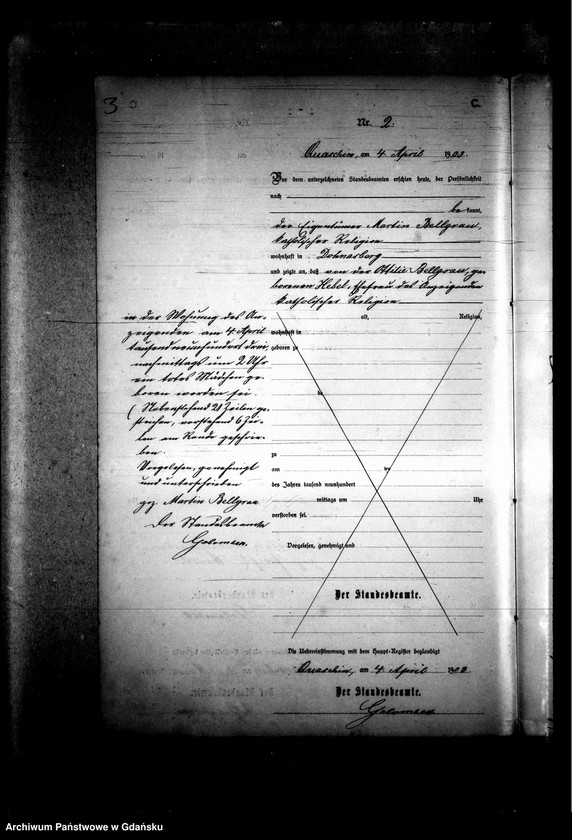 3
C.
Nr. 2
Quaschin, am 4 April 1903.
Vor dem unterzeichneten Standesbeamten erschien heute, der Persönlichkeit
nach
bekannt,
der Eigentümer Martin Bellgrau,
katholischer Religion
wohnhaft in Dohnasberg
und zeigte an, daß von der Ottilie Bellgrau, ge
borenen Hebel, Ehefrau des Anzeigenden
katholischer Religion
alt, Religion,
wohnhaft in
geboren zu
zu
am
des Jahres tausend neunhundert
mittags um Uhr
verstorben sei.
Vorgelesen, genehmigt und
Der Standesbeamte.
in der Wohnung des An-
zeigenden am 4. April
tausendneunhundert drei
nachmittags um 2 Uhr
ein totes Mädchen ge-
boren worden sei.
(Nebenstehend 21 Zeilen ge-
strichen, vorstehend 6 Zei-
len am Rande geschrie-
ben.
Vorgelesen, genehmigt
und unterschrieben
gez. Martin Bellgrau
Der Standesbeamte
Die Uebereinstimmung mit dem Haupt-Register beglaubigt
Quaschin, am 4. April 1903
Der Standesbeamte.
Archiwum Państwowe w Gdańsku